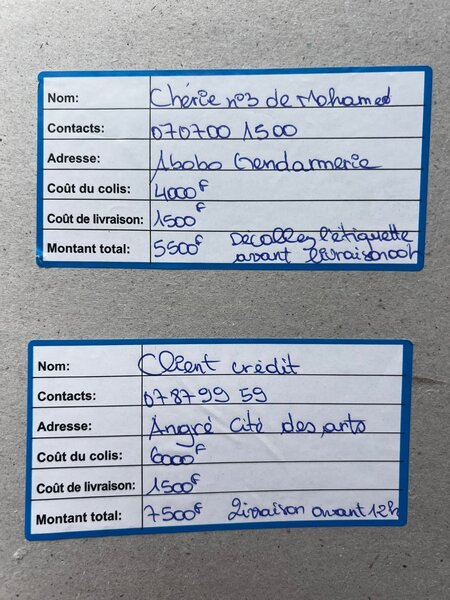 Nom: Chérie n°3 de Mohamed
Contacts: 070700 1500
Adresse: Abobo Gendarmerie
Coût du colis: 4000F
Coût de livraison: 1500F
Montant total: 5500F Décollez l'étiquette
avant livraison
Nom: Client crédit
Contacts: 07879959
Adresse: Angré Cité des arts
Coût du colis: 6000F
Coût de livraison: 1500F
Montant total: 7500F Livraison avant 12h